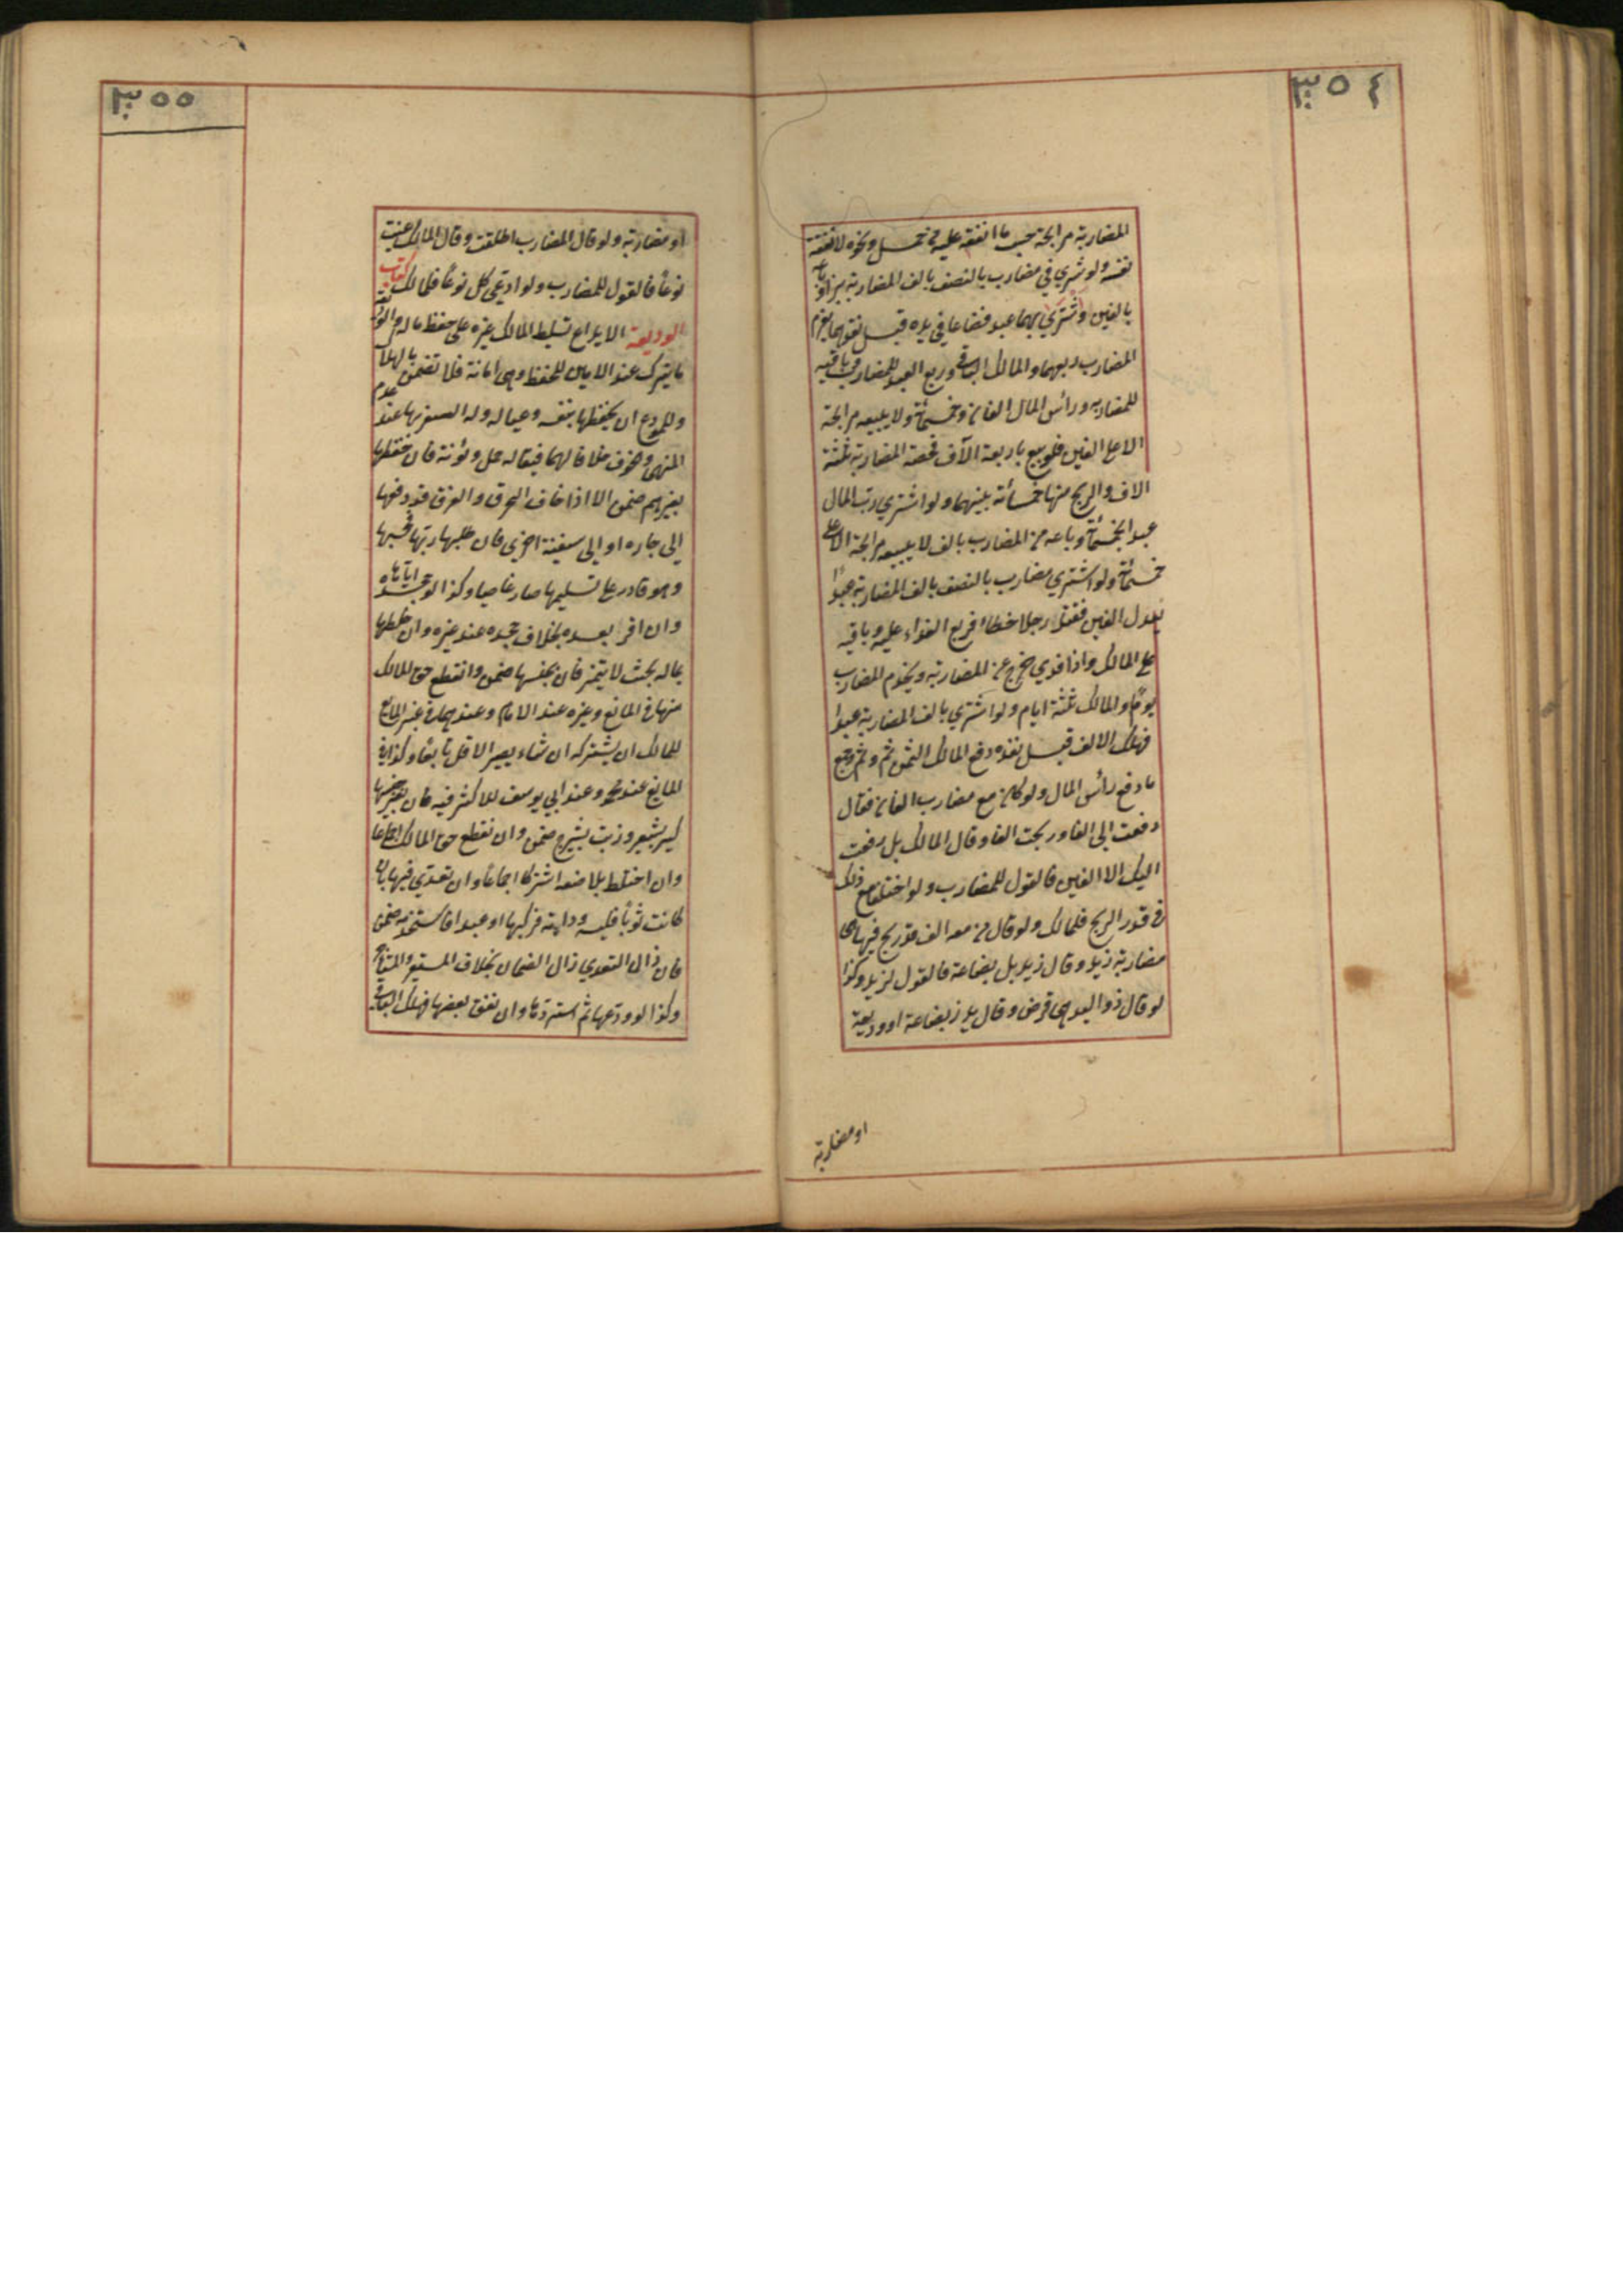 ٣٥٤
المضاربة مرابحة حسب ما انفقه عليه من حمل ونحوه لا نفقة
نفسه ولو شرى مضارب بالنصف بالف المضاربة بزا وباعه
بالفين واشترى بهما عبدا فضاعا في يده قبل نقدهما يغرم
المضارب ربعهما والمالك الباقي وربع العبد للمضارب وباقيه
للمضاربه ورأس المال الفان وخمسمائة ولا يبيعه مرابحة
الا على الفين فلو بيع باربعة الآف فحصة المضاربة ثلثة
الاف والربح منها خمسمائة بينهما ولو اشترى رب المال
عبدا بخمسمائة وباعه من المضارب بالف لا يبيعه مرابحة الا على
خمسمائة ولو اشترى مضارب بالنصف بالف المضاربة عبدا
يعدل الفين فقتل رجلا خطاء فربع الفداء عليه وباقيه
على المالك واذا فدي خرج عن المضاربة ويخدم المضارب
يوما والمالك ثلثة ايام ولو اشترى بالف المضاربة عبدا
فهلك الالف قبل نقده دفع المالك الثمن ثم وثم وجميع
ما دفع رأس المال ولو كان مع مضارب الفان فقال
دفعت الى الفا وربحت الفا وقال المالك بل دفعت
اليك الا الفين فالقول للمضارب ولو اختلفا مع ذلك
في قدر الربح فللمالك ولو قال من معه الف قد ربح فيها هى
مضاربة زيد وقال زيد بل بضاعة فالقول لزيد وكذا
لو قال ذو اليد هى قرض وقال زيد بضاعة او وديعة
او مضاربة
٣٥٥
او مضاربة ولو قال المضارب اطلقت وقال المالك عينت
نوعا فالقول للمضارب ولو ادعى كل نوعا فللمالك كتاب
الوديعة الايداع تسليط المالك غيره على حفظ ماله والوديعة
ما يترك عند الامين للحفظ وهى امانة فلا تضمن بالهلاك
وللمودع ان يحفظها بنفسه وعياله وله السفر بها عند عدم
النهى والخوف خلافا لهما فيما له حمل ومؤنة فان حفظها
بغيرهم ضمن الا اذا خاف الحرق والغرق فدفعها
إلى جاره او الى سفينة اخرى فان طلبها ربها فحبسها
وهو قادر على تسليمها صار غاصبا وكذا لو جحده اياها
وان اقر بعده بخلاف جحده عند غيره وان خلطها
بماله بحيث لا يتميز فان بجنسها ضمن وانقطع حق المالك
منها في المائع وغيره عند الامام وعندهما في غير المائع
للمالك ان يشركه ان شاء ويصير الاقل تابعا وكذا في
المايع عند محمد وعند ابي يوسف للاكثر فيه فان بغير جنسها
كبر بشعير وزيت بشيرج ضمن وانقطع حق المالك اجماعا
وان اختلط بلا صنعه اشتركا اجماعا وان تعدى فيها بان
كانت ثوبا فلبسه ودابة فركبها او عبدا فاستخدمه ضمن
فان زال التعدي زال الضمان بخلاف المستعير والمستأجر
وكذا لو ودعها ثم استردها وان نفق بعضها فهلك الباقي